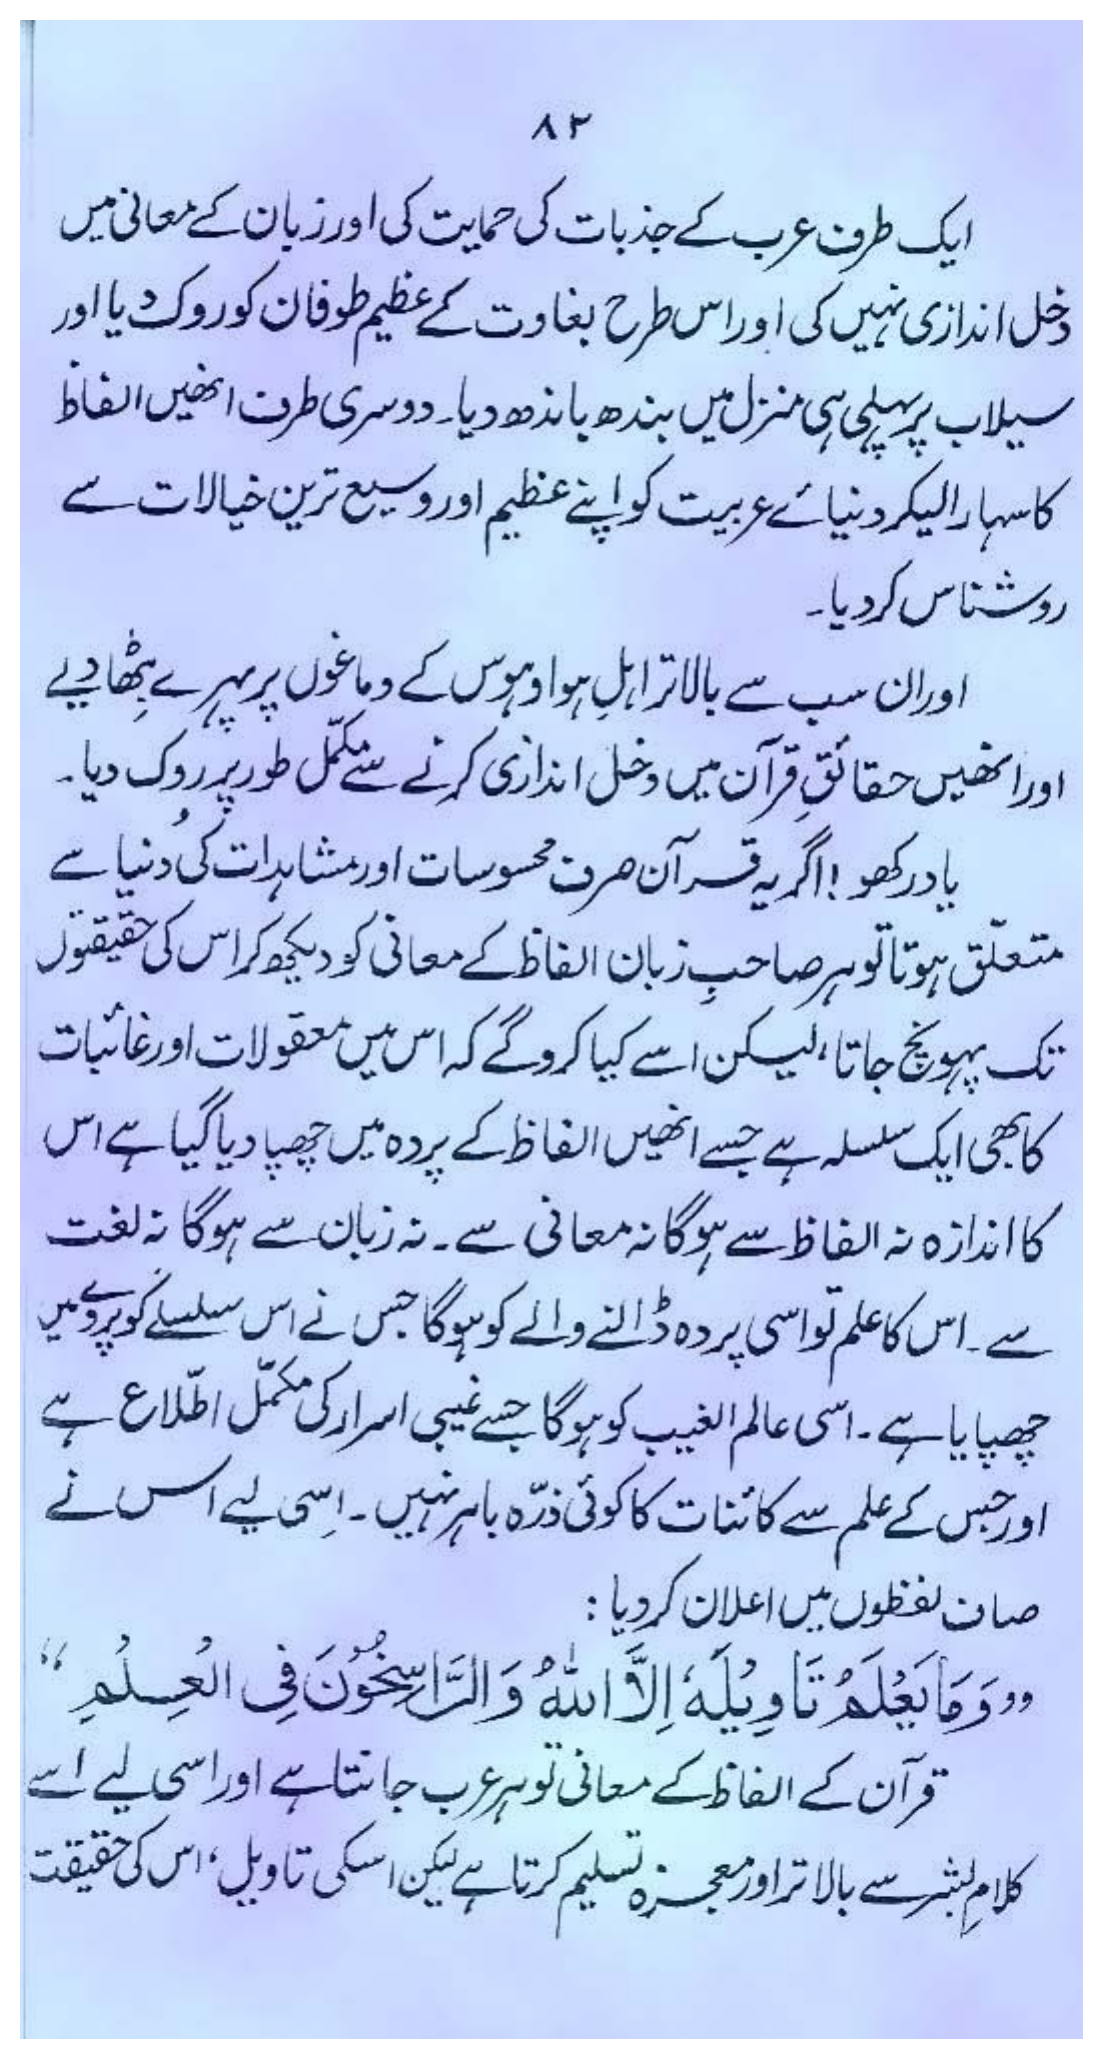 ۸۲
ایک طرف عرب کے جذبات کی حمایت کی اور زبان کے معانی میں
دخل اندازی نہیں کی اور اس طرح بغاوت کے عظیم طوفان کو روک دیا اور
سیلاب پر پہلی ہی منزل میں بندھ باندھ دیا۔ دوسری طرف انھیں الفاظ
کا سہارا لیکر دنیائے عربیت کو اپنے عظیم اور وسیع ترین خیالات سے
روشناس کردیا۔
اور ان سب سے بالاتر اہلِ ہوا و ہوس کے دماغوں پر پہرے بِٹھا دیے
اور انھیں حقائقِ قرآن میں دخل اندازی کرنے سے مکمّل طور پر روک دیا۔
یاد رکھو! اگر یہ قرآن صرف محسوسات اور مشاہدات کی دُنیا سے
متعلّق ہوتا تو ہر صاحبِ زبان الفاظ کے معانی کو دیکھ کر اس کی حقیقتوں
تک پہونچ جاتا، لیکن اسے کیا کروگے کہ اس میں معقولات اور غائبات
کا بھی ایک سلسلہ ہے جسے انھیں الفاظ کے پردہ میں چھپا دیا گیا ہے اس
کا اندازہ نہ الفاظ سے ہوگا نہ معانی سے۔ نہ زبان سے ہوگا نہ لغت
سے۔ اس کا علم تو اسی پردہ ڈالنے والے کو ہوگا جس نے اس سلسلے کو پردے میں
چھپایا ہے۔ اسی عالم الغیب کو ہوگا جسے غیبی اسرار کی مکمّل اطّلاع ہے
اور جس کے علم سے کائنات کا کوئی ذرّہ باہر نہیں۔ اِسی لیے اس نے
صاف لفظوں میں اعلان کردیا:
”وَمَا یَعْلَمُ تَاوِیْلَہٗ اِلَّا اللّٰہُ وَالرَّاسِخُوْنَ فِی الْعِلْمِ“
قرآن کے الفاظ کے معانی تو ہر عرب جانتا ہے اور اسی لیے اسے
کلامِ بشر سے بالاتر اور معجزہ تسلیم کرتا ہے لیکن اسکی تاویل، اس کی حقیقت